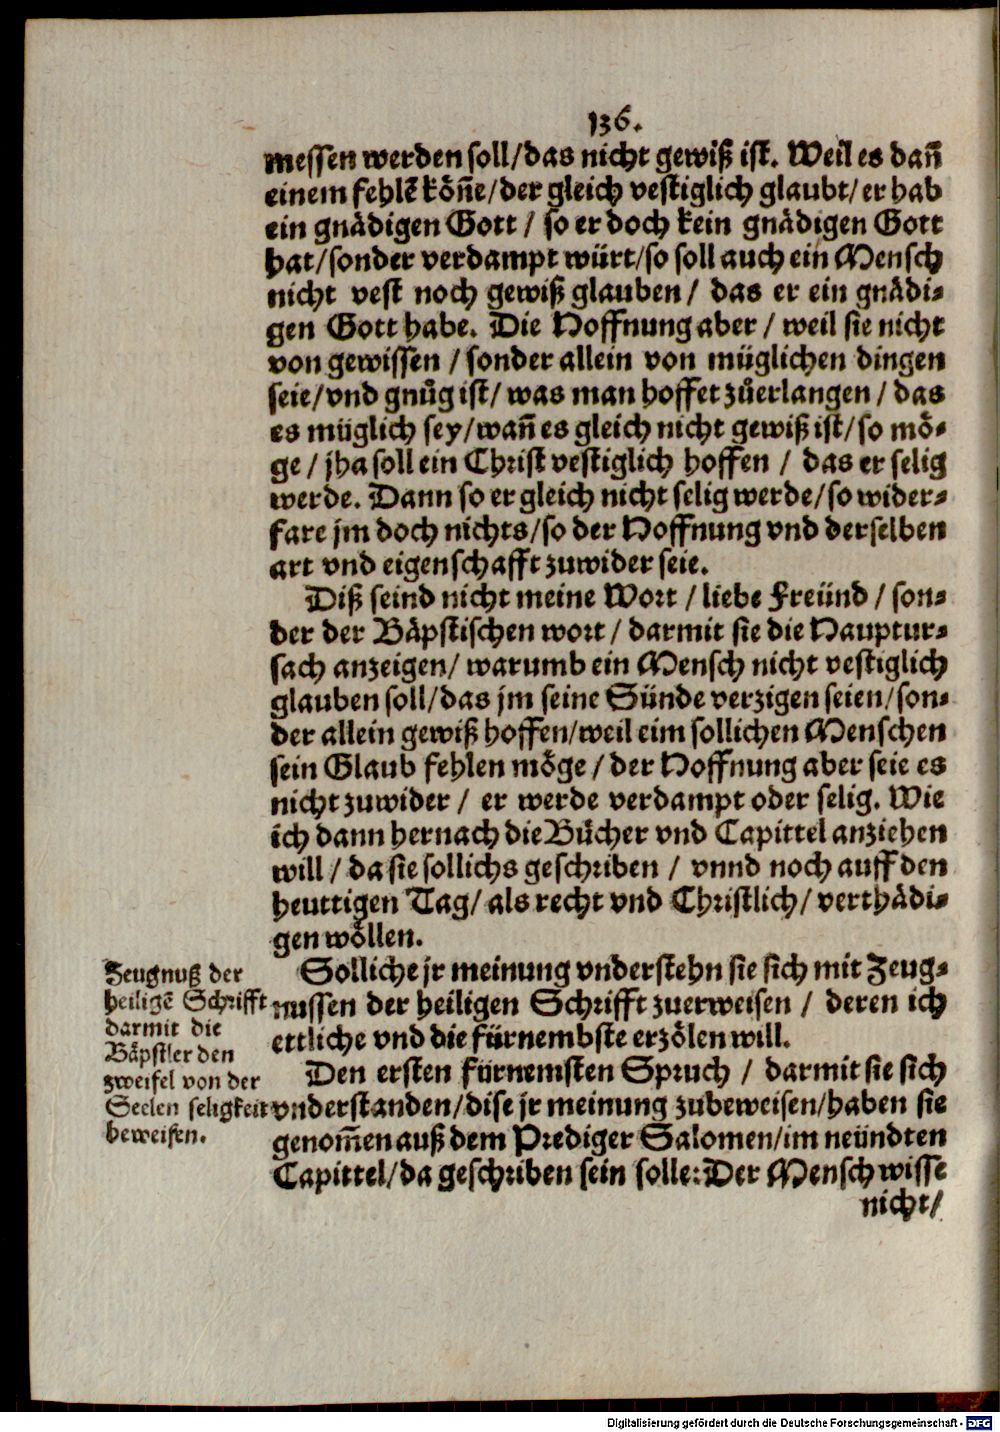 136.
messen werden soll/das nicht gewiß ist. Weil es dañ
einem fehlẽ köñe/der gleich vestiglich glaubt/er hab
ein gnädigen Gott / so er doch kein gnädigen Gott
hat/sonder verdampt würt/so soll auch ein Mensch
nicht vest noch gewiß glauben/ das er ein gnädi-
gen Gott habe. Die Hoffnung aber / weil sie nicht
von gewissen / sonder allein von müglichen dingen
seie/vnd gnůg ist/ was man hoffet zůerlangen / das
es müglich sey/wañ es gleich nicht gewiß ist/so mö-
ge / jha soll ein Christ vestiglich hoffen / das er selig
werde. Dann so er gleich nicht selig werde/so wider-
fare jm doch nichts/so der Hoffnung vnd derselben
art vnd eigenschafft zuwider seie.
Diß seind nicht meine Wort / liebe Freünd / son-
der der Bäpstischen wort / darmit sie die Hauptur-
sach anzeigen/ warumb ein Mensch nicht vestiglich
glauben soll/das jm seine Sünde verzigen seien/son-
der allein gewiß hoffen/weil eim sollichen Menschen
sein Glaub fehlen möge / der Hoffnung aber seie es
nicht zuwider / er werde verdampt oder selig. Wie
ich dann hernach die Bücher vnd Capittel anziehen
will / da sie sollichs geschriben / vnnd noch auff den
heuttigen Tag/ als recht vnd Christlich/ verthädi-
gen wöllen.
Zeugnuß der
heiligẽ Schrifft
darmit die
Bäpstler den
zweifel von der
Seelen seligkeit
beweisen.
Solliche jr meinung vnderstehn sie sich mit Zeug-
nussen der heiligen Schrifft zuerweisen / deren ich
ettliche vnd die fürnembste erzölen will.
Den ersten fürnemsten Spruch / darmit sie sich
vnderstanden/dise jr meinung zubeweisen/haben sie
genom̃en auß dem Prediger Salomen/im neündten
Capittel/da geschriben sein solle: Der Mensch wisse
nicht/
Digitalisierung gefördert durch die Deutsche Forschungsgemeinschaft - DFG